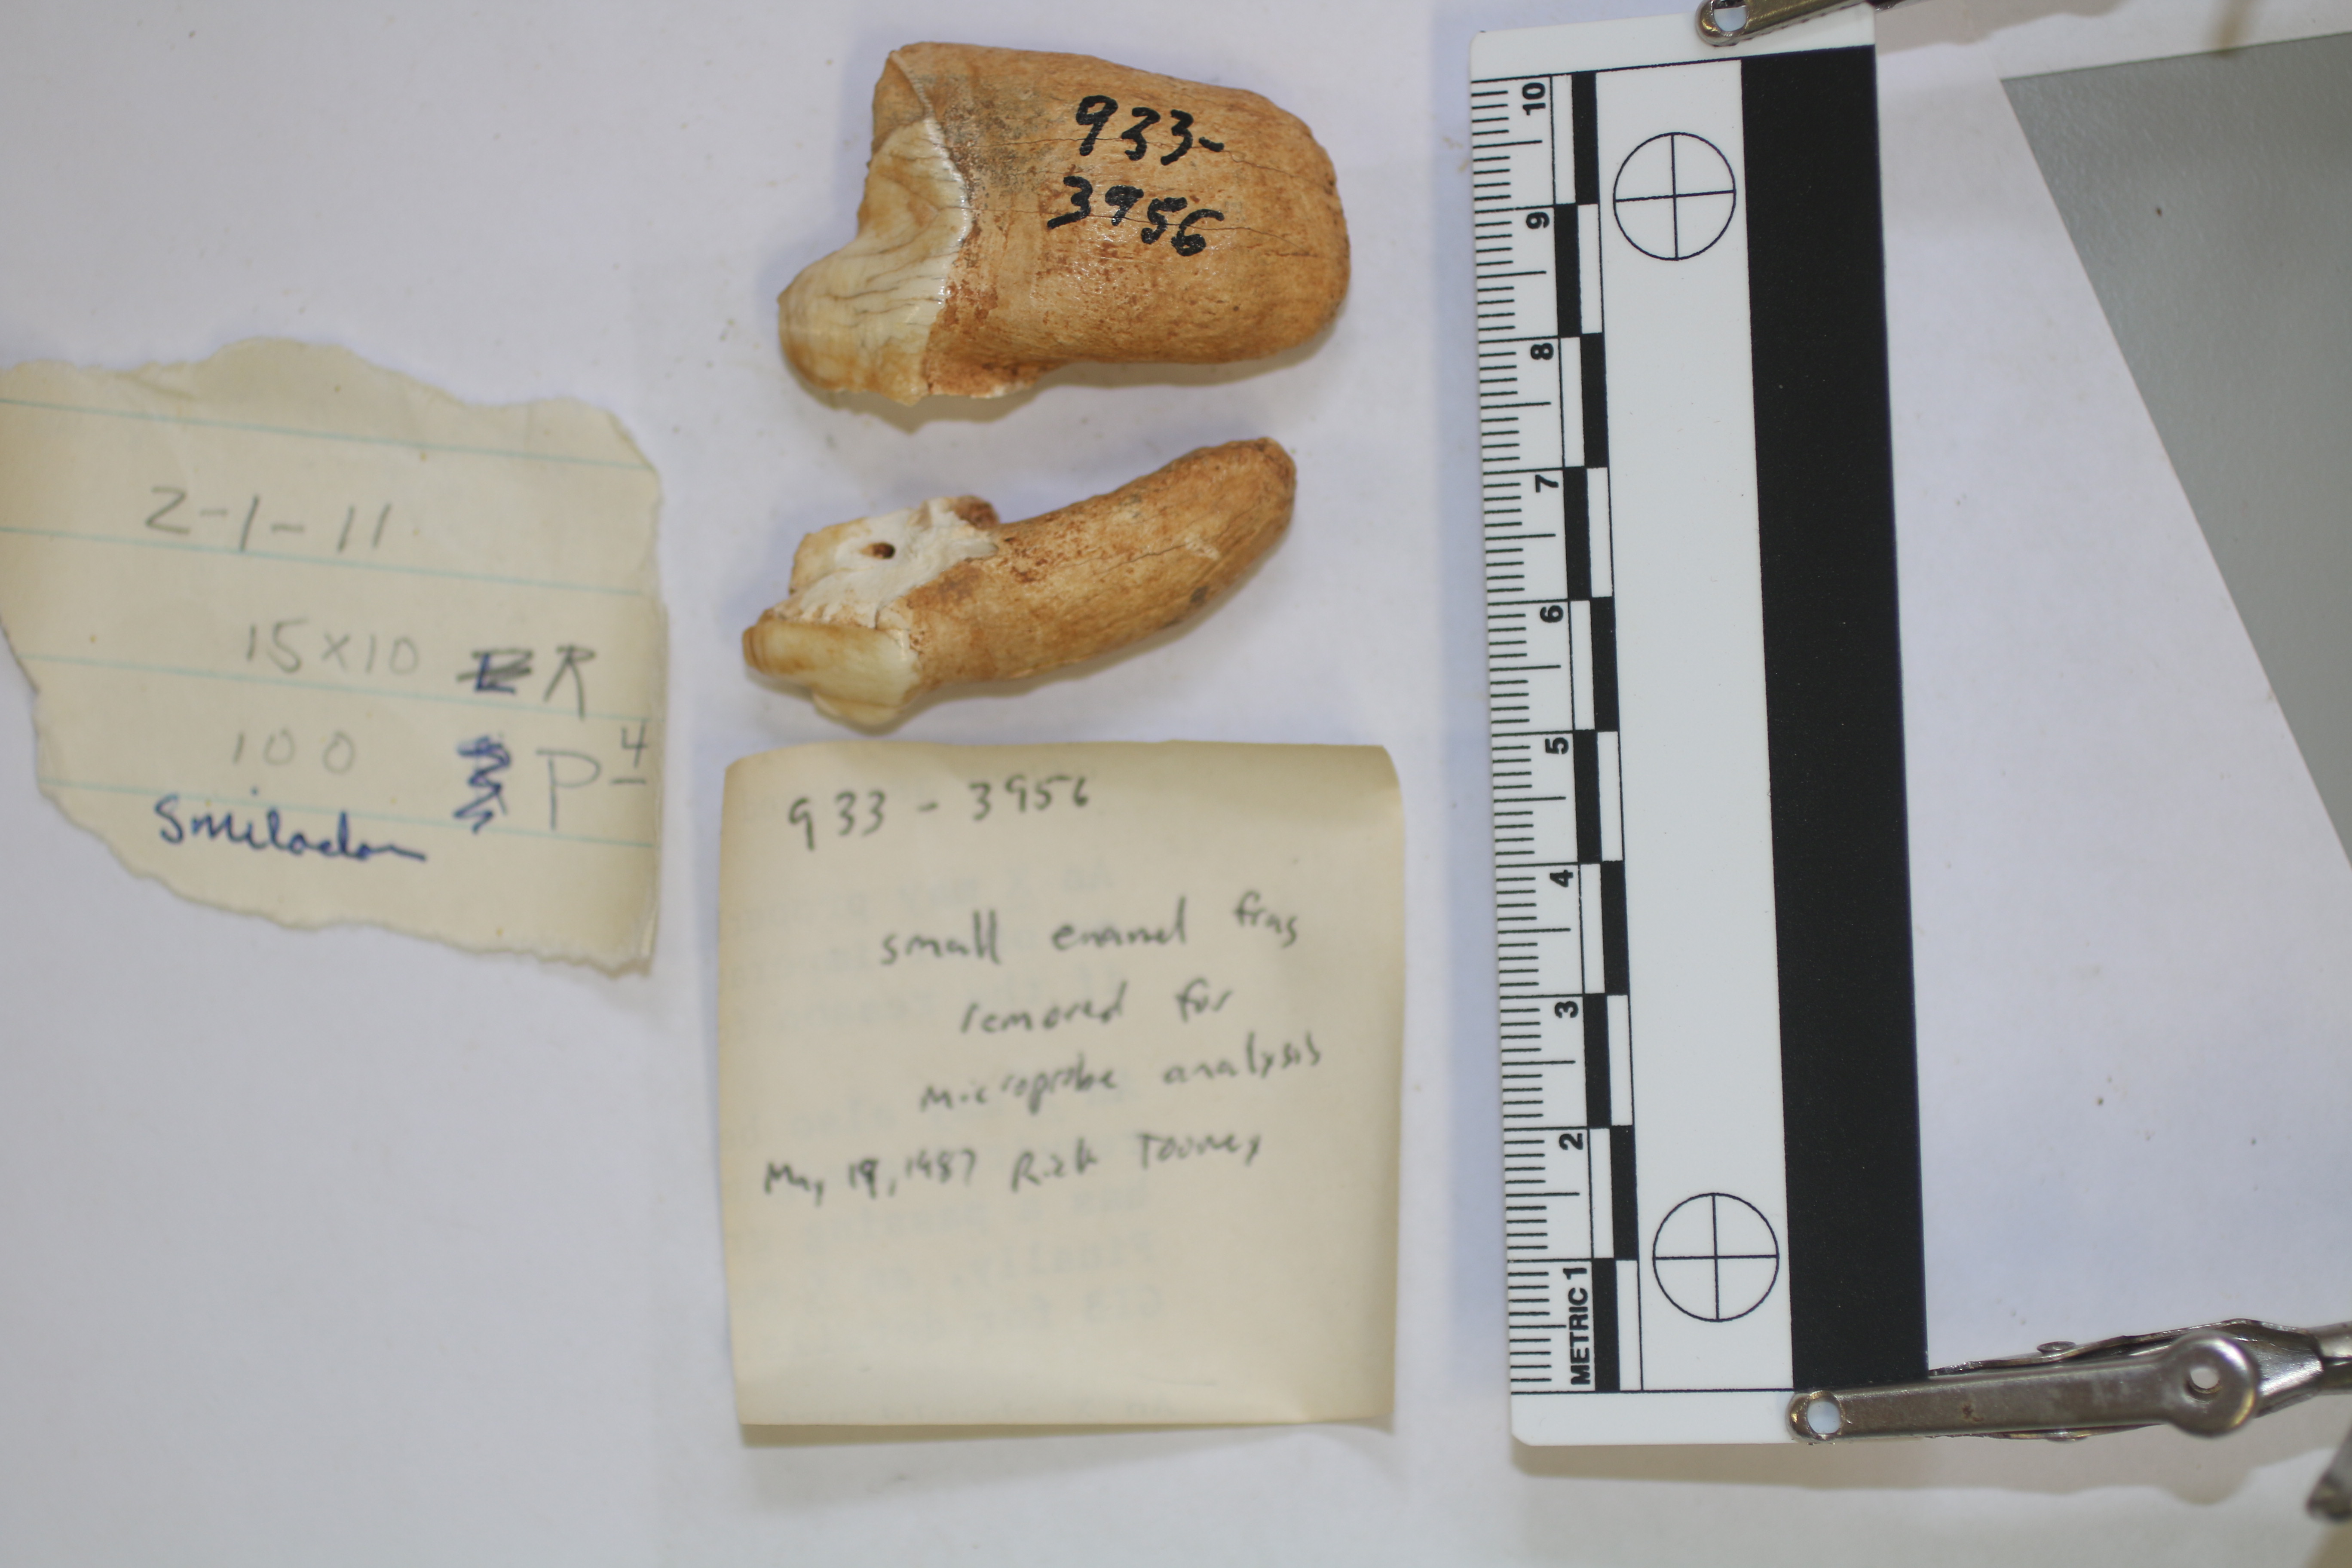 2-1-11
15 x 10 R
100 P4
Smilodon
933 - 3956
small enamel frag
removed for
microprobe analysis
May 19, 1987 Rick Toomey
933-
3956
METRIC 1 2 3 4 5 6 7 8 9 10